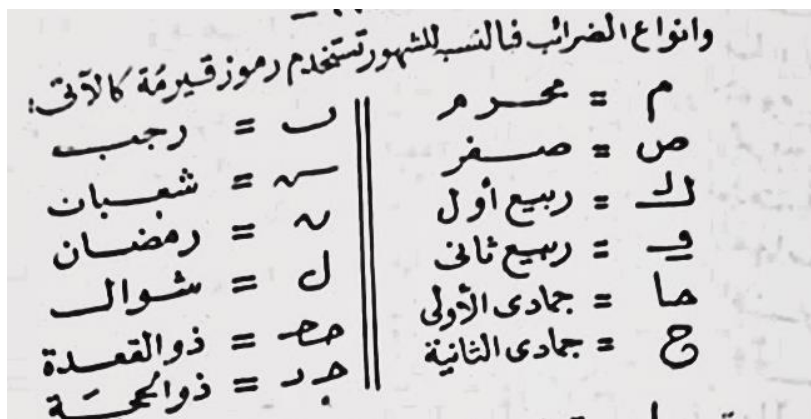 وانواع الضرائب فبالنسبه للشهور تستخدم رموز قيرمة كالآتى:
م = محرم
ص = صفر
= ربيع أول
= ربيع ثانى
حا = جمادى الأولى
ج = جمادى الثانية
ب = رجب
= شعبان
ن = رمضان
ل = شوال
= ذوالقعدة
= ذوالحجة